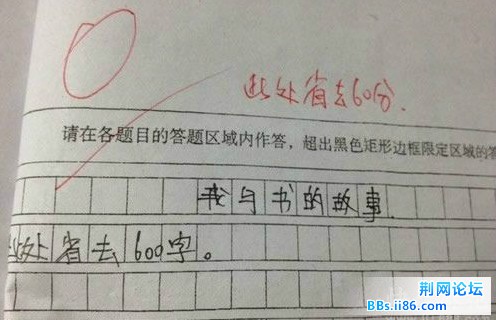 此处省去60分.
请在各题目的答题区域内作答，超出黑色矩形边框限定区域的答
我与书的故事.
此处省去600字。
荆网论坛
BBs.ii86.com